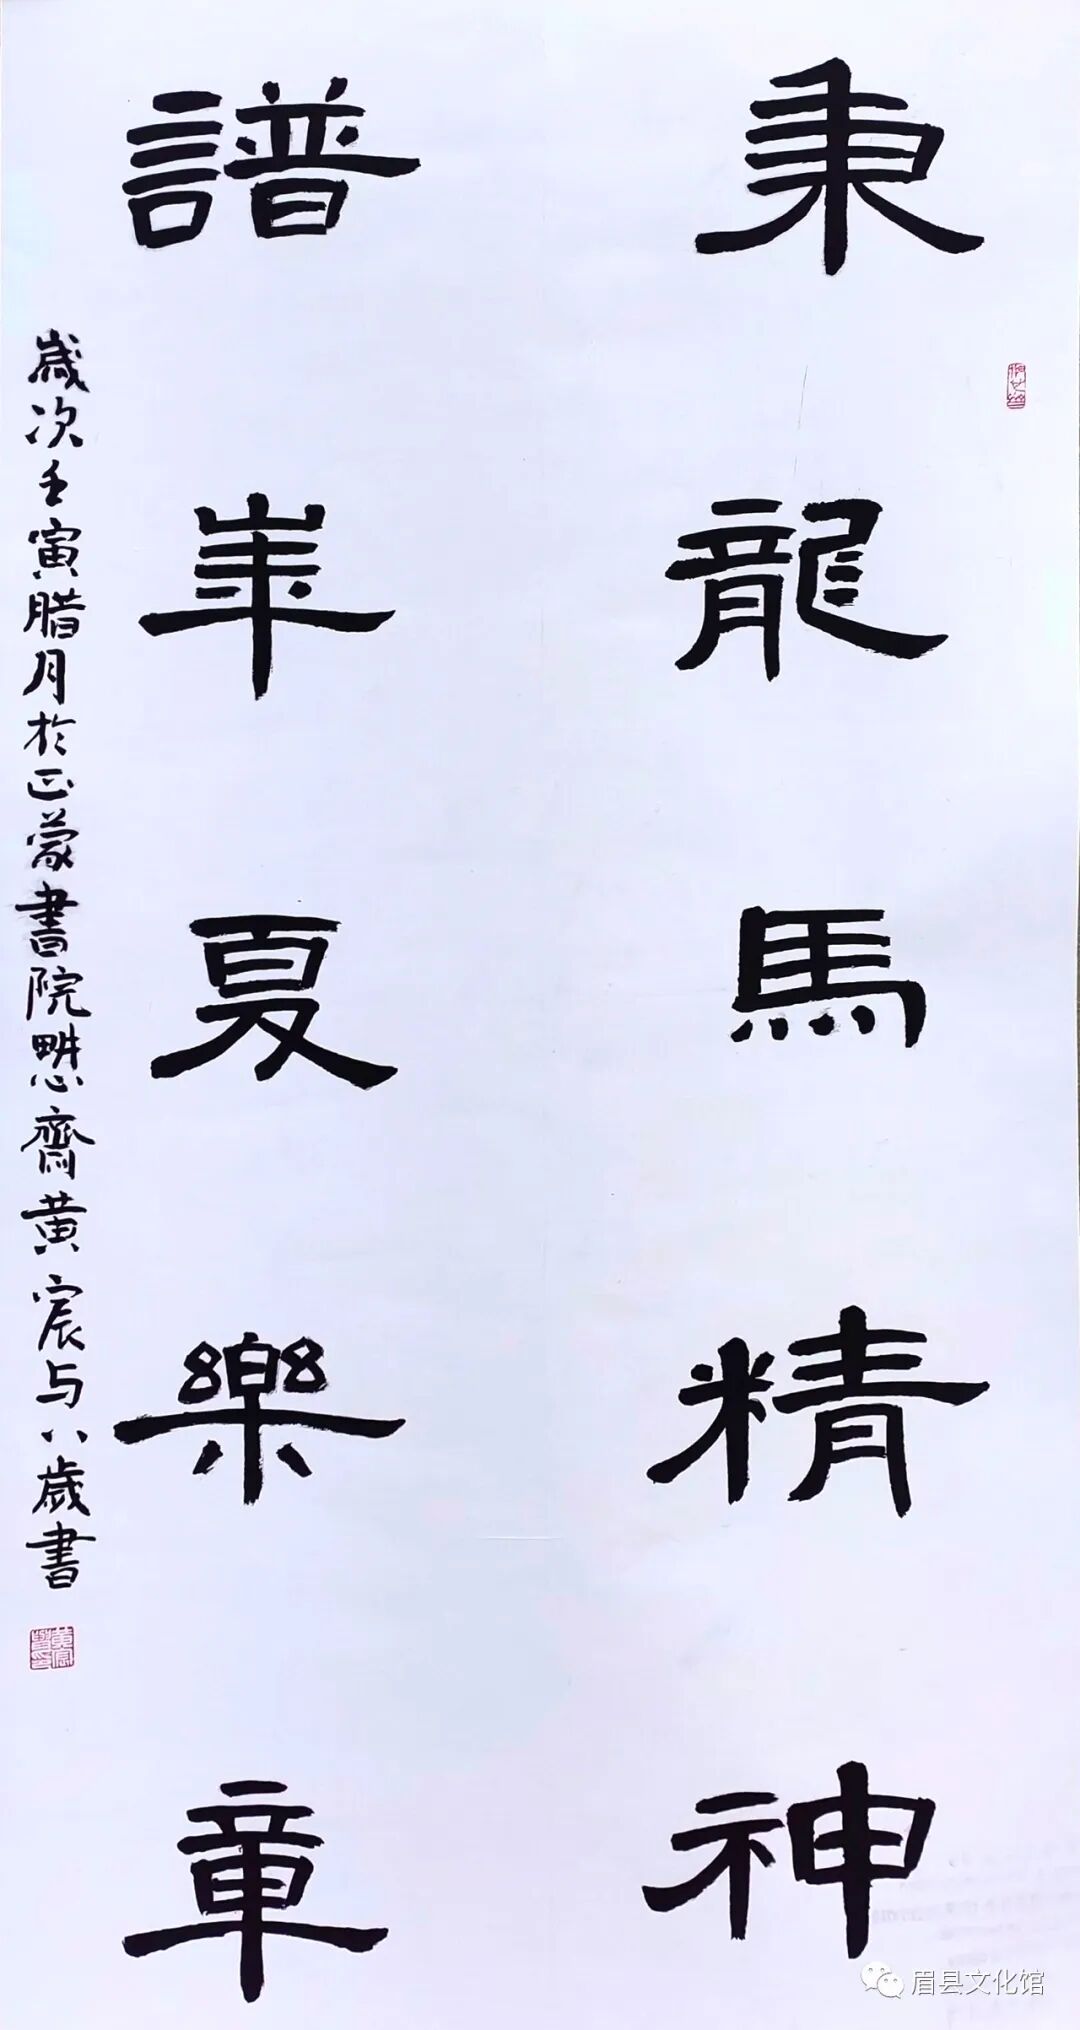 秉龍馬精神
譜華夏樂章
歲次壬寅腊月於正蒙書院思齋黄宸与八歲書
眉县文化馆